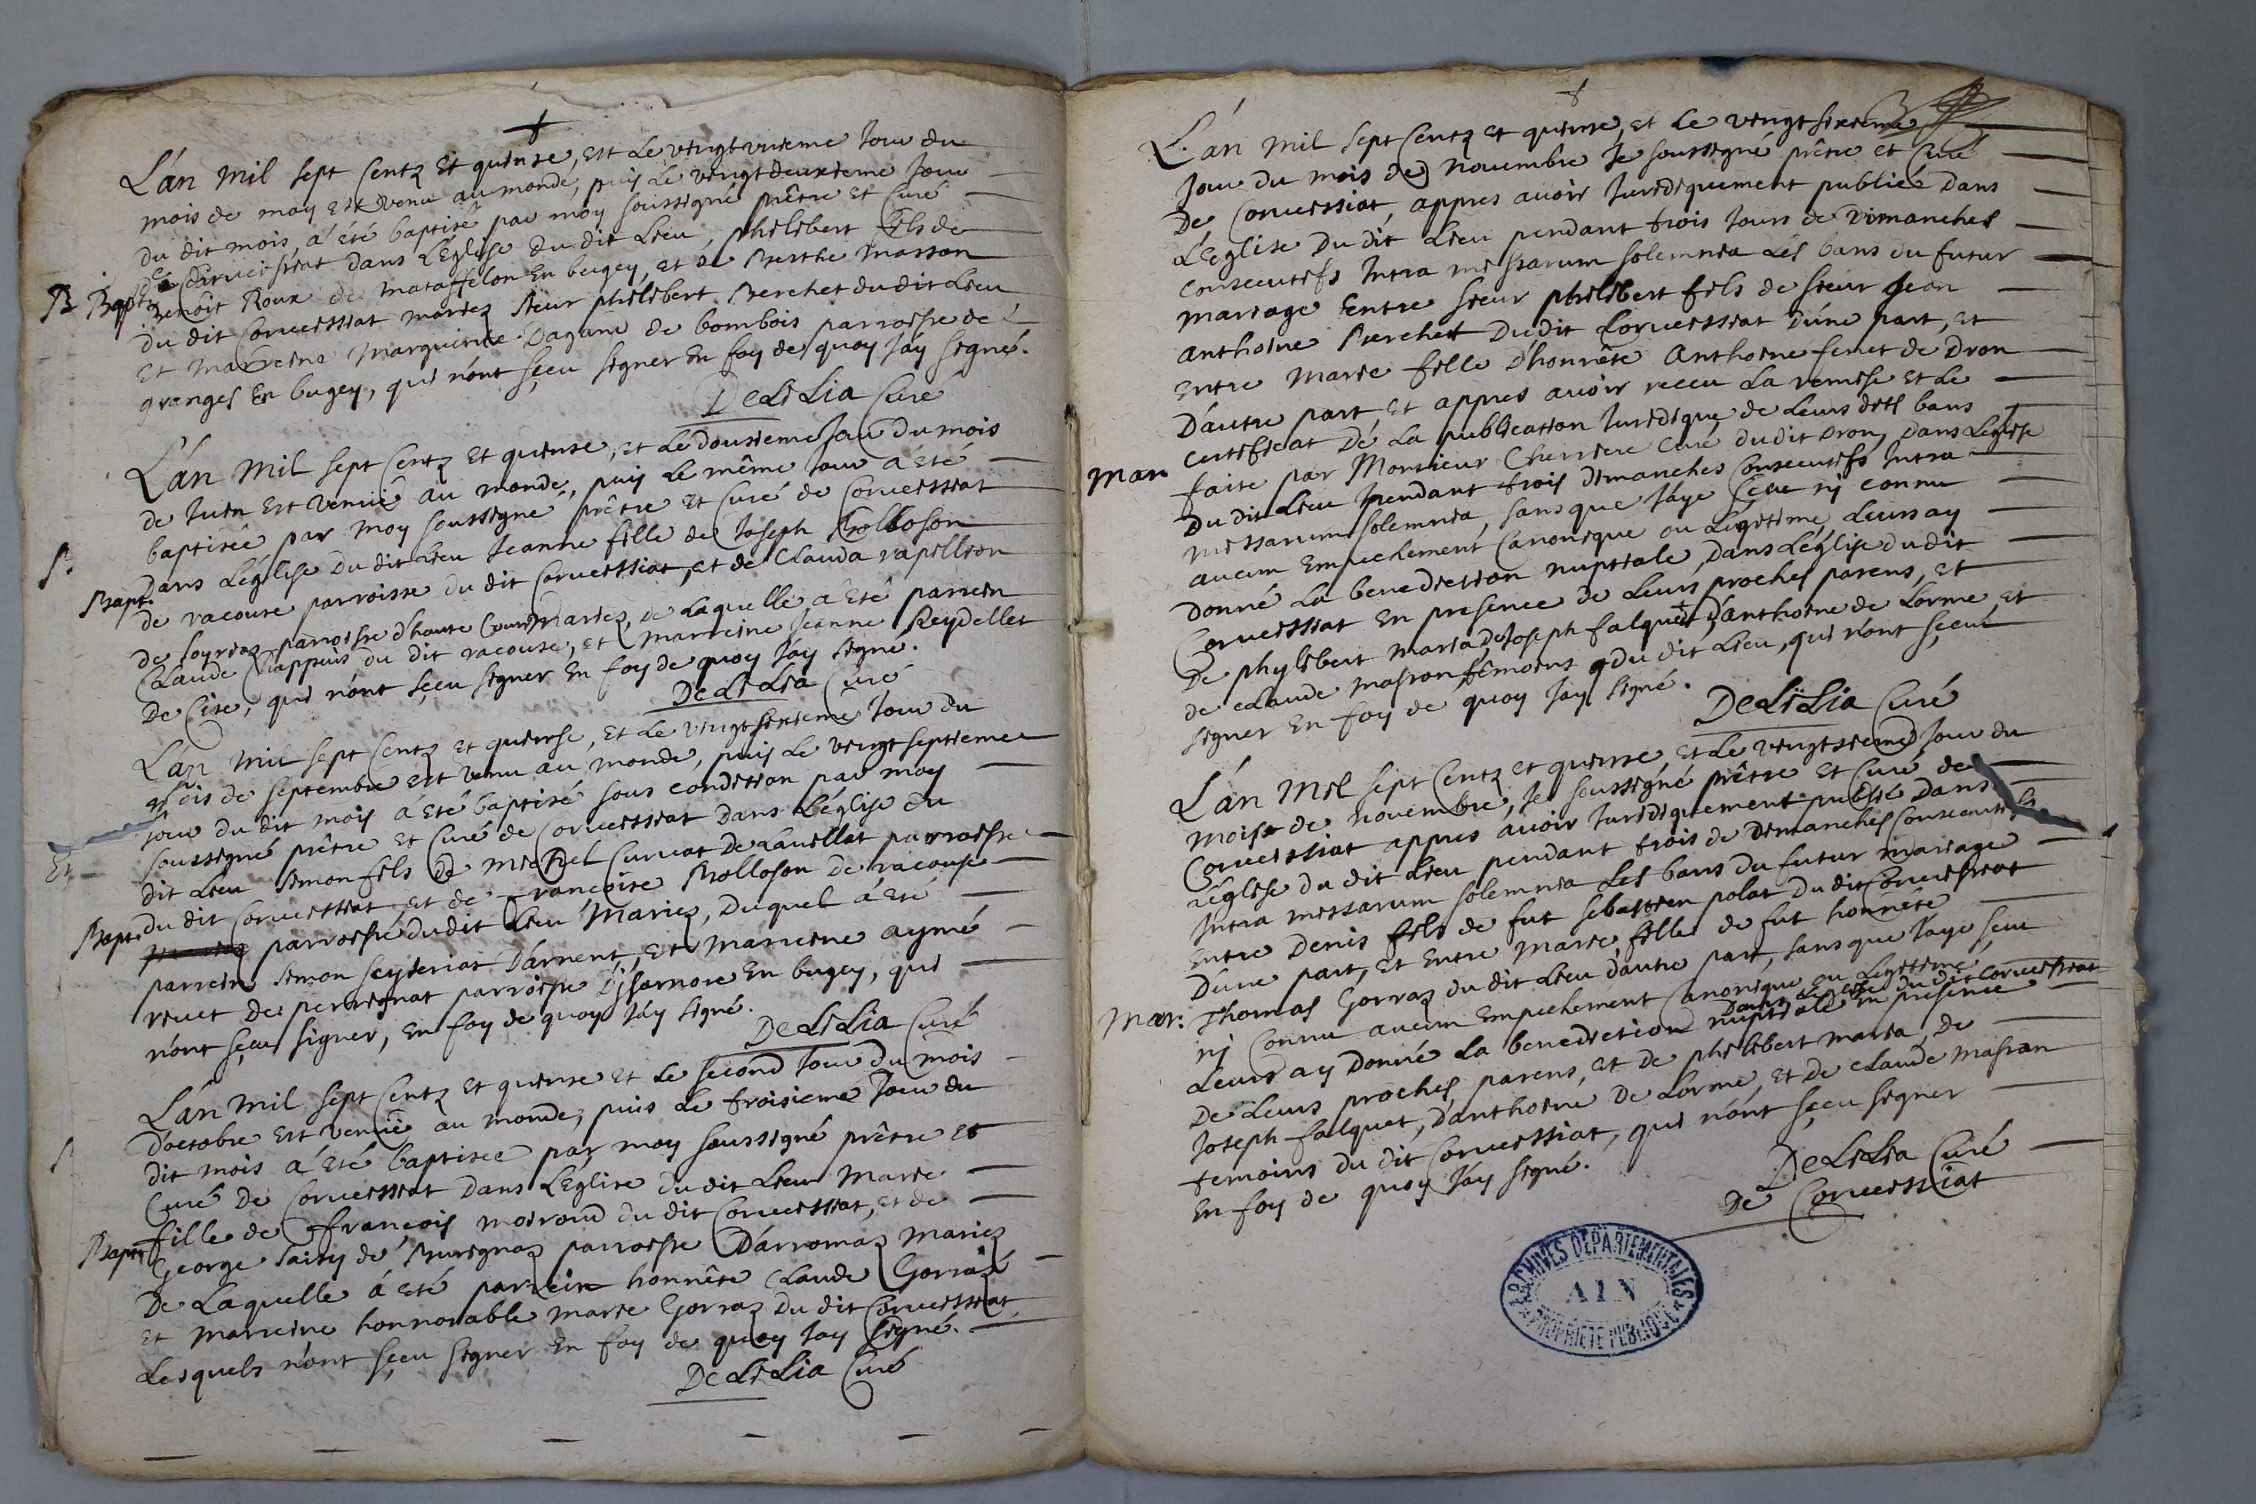 L'án mil sept Centz et quinse, est le vingtunieme Jour du
mois de may est venu au monde, puis le vingtdeuxieme Jour
du dit mois, á été baptisé par moy soussigné prêtre et Curé
de Corveissiat dans L'Eglise du dit Lieu, philibert fils de
B Bapt. Benoit Roux de mataffelon En bugey, et de Berthe masson
du dit Corveissiat mariez Sieur philibert Berchet du dit Lieu
et marreine marguerite Dagand de bombois parroisse de
granges En bugey, qui n'ont sçeu signer En foy de quoy Jáy signé.
DeLiLia Curé
L'án mil sept Centz et quinse, et le dousieme Jour du mois
de Juin est venüe au monde, puis le même Jour á été
baptisée par moy soussigné prêtre et Curé de Corveissiat
B. dans L'église du dit Lieu Jeanne fille de Joseph Bolloson
Bapt. de racouse parroisse du dit Corveissiat, et de Clauda rapillion
de soyriaz parroisse d'haute Cour mariez, de Laquelle á été parrein
Claude Chappuis du dit racouse, et marreine Jeanne Reydellet
De Cise, qui n'ont sçeu signer En foy de quoy Jáy signé.
DeLiLia Curé
L'án mil sept Centz et quinse, et le vingtsixieme Jour du
mois de septembre est venu au monde, puis le vingt septieme
Jour du dit mois á été baptisé sous condition par moy
soussigné prêtre et Curé de Corveissiat dans L'église du
dit Lieu simon fils de michel Curvat De Lavillat parroisse
Bapt. du dit Corveissiat et de francoise Bolloson de racouse
parroisse du dit Lieu Mariez, Duquel á été
parrein simon seyteriat D'árnent, et marreine aymé
revet de perrignat parroisse D'jsarnore En bugey, qui
n'ont sçeu signer, En foy de quoy Jáy signé.
DeLiLia Curé
L'án mil sept Centz et quinse et le second Jour du mois
D'octobre est venüe au monde, puis le troisieme Jour du
dit mois á été baptisée par moy soussigné prêtre et
Curé De Corveissiat dans L'Eglise du dit Lieu Marie
fille de françois moiroud du dit Corveissiat, et de
Bapt. George saisy de Burignaz parroisse D'arromaz mariez
De Laquelle á été parrein honnête Claude Gorraz
et marreine honnorable marie Gorraz du dit Corveissiat,
Lesquels n'ont sçeu signer En foy de quoy Jay signé.
DeLiLia Curé
L'án mil sept Centz et quinse, et le vingtsixieme
Jour du mois de novembre Je soussigné prêtre et Curé
De Corveissiat, appres avoir Juridiquement publié dans
L'Eglise du dit Lieu pendant trois Jours de Dimanches
consecutifs Intra missarum solemnia Les bans du futur
mariage Entre sieur philibert fils de sieur Jean
anthoine Berchet Du dit Corveissiat D'úne part, et
Entre Marie fille D'honnête Anthoine feriet de Dron
D'áutre part et appres avoir receu La remise et Le
certificat De La publication Juridique de Leurs dits bans
mar. faite par Monsieur Cherriere Curé du dit Dron, dans L'eglise
Du dit Lieu pendant trois dimanches Consecutifs Intra
missarum solemnia, sans que Jáye sçeu ni connu
aucun Empechement Canonique ou Legitime, Leurs ay
Donné La benediction nuptiale, dans L'église du dit
Corveissiat En presence de Leurs proches parens, et
De phylibert maria, De Joseph falquet, D'anthoine de Lorme, et
de claude masson, témoins du dit Lieu, qui n'ont sçeu
signer En foy de quoy Jay signé.
DeLiLia Curé
L'án mil sept Centz et quinse, et le vingtsieme Jour du
mois de novembre, Je soussigné prêtre et Curé de
Corveissiat appres ávoir Juridiquement publié dans
L'église du dit Lieu pendant trois de Dimanches consecutifs
Intra missarum solemnia Les bans du futur mariage
Entre Denis fils de fut sebastien polat du dit Corveissiat
D'úne part, et Entre Marie fille de fut honnête
mar. Thomas Gorraz du dit Lieu d'autre part, sans que Jáye sçeu
ni Connu aucun Empechement Canonique ou Legitime,
dans L'eglise du dit Corveissiat
Leurs ay donné la benediction nuptiale En presence
De Leurs proches parens, et de philibert maria, De
Joseph falquet, d'anthoine De Lorme, et De claude masson
temoins du dit Corveissiat, qui n'ont sçeu signer
En foy de quoy Jáy signé.
DeLiLia Curé
De Corveissiat
ARCHIVES DÉPARTEMENTALES
AIN
PROPRIÉTÉ PUBLIQUE